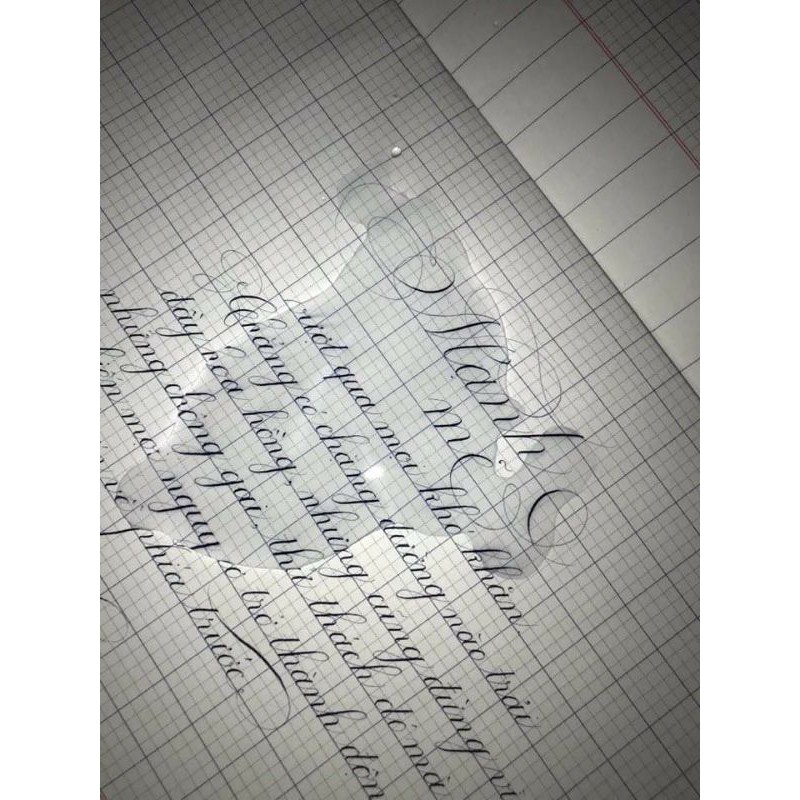 Mạnh mẽ
vượt qua mọi khó khăn.
Chẳng có chặng đường nào trải
đầy hoa hồng, nhưng cũng đừng vì
những chông gai, thử thách đó mà
nguy cơ trở thành đòn
về phía trước.